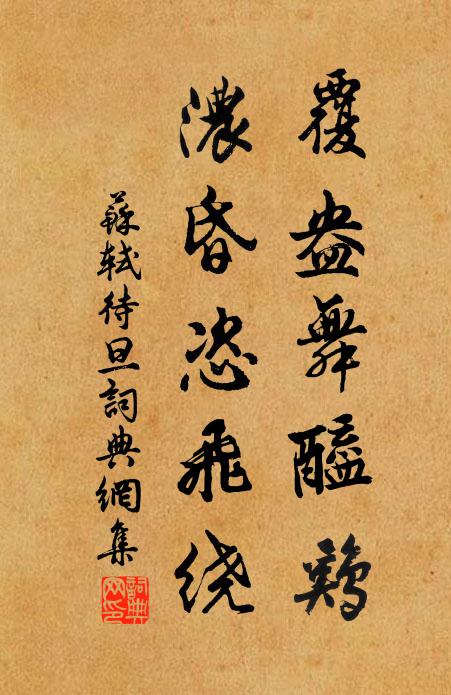 覆盎舞醯鷄
濃昏恣飛绕
蘇軾待旦詞典網集
詞典
网印